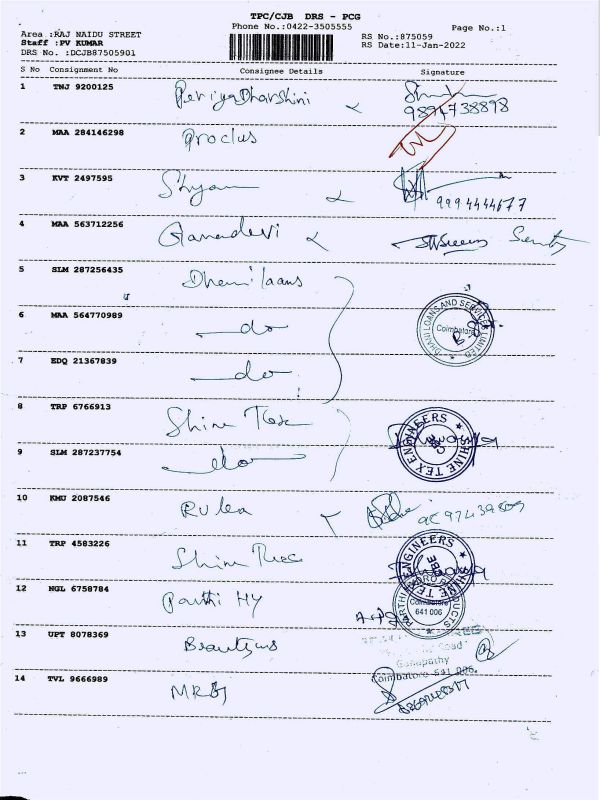 TPC/CJB DRS - PCG
Phone No.:0422-3505555
Page No.:1
Area :RAJ NAIDU STREET
Staff :PV KUMAR
DRS No. :DCJB87505901
RS No.:875059
RS Date:11-Jan-2022
S No Consignment No Consignee Details Signature
1 TNJ 9200125 PeriyaDharshini
9894738898
2 MAA 284146298 Proclus
3 KVT 2497595 Shyam
9994444677
4 MAA 563712256
5 SLM 287256435
6 MAA 564770989 do
DHANI LOANS AND SERVICES LIMITED
Coimbatore
7 EDQ 21367839 do
8 TRP 6766913 Shine Tex
SHINE TEX ENGINEERS
CBE
9 SLM 287237754 do
10 KMU 2087546
11 TRP 4583226 Shine Tex
SHINE TEX ENGINEERS
CBE
12 NGL 6758784 Parthi Hy
Coimbatore
641 006
13 UPT 8078369
Road
Ganapathy
Coimbatore 641 006.
14 TVL 9666989